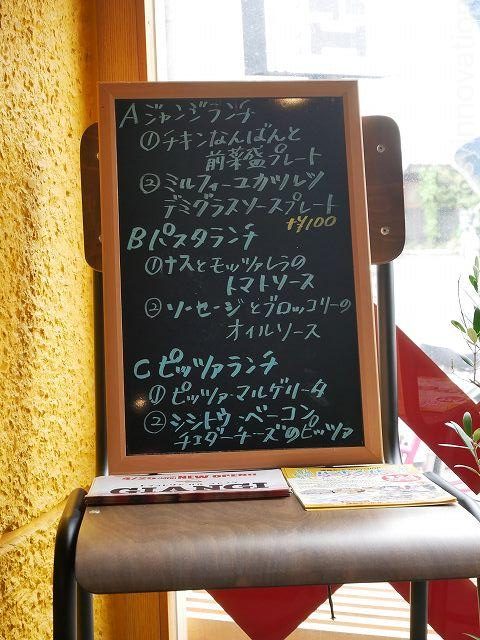 A ジャンジランチ
① チキンなんばんと
前菜盛プレート
② ミルフィーユカツレツ
デミグラスソースプレート
+¥100
B パスタランチ
① ナスとモッツァレラの
トマトソース
② ソーセージとブロッコリーの
オイルソース
C ピッツァランチ
① ピッツァ・マルゲリータ
② シシトウ・ベーコン。
チェダーチーズのピッツァ
NEW OPEN
GIANGI